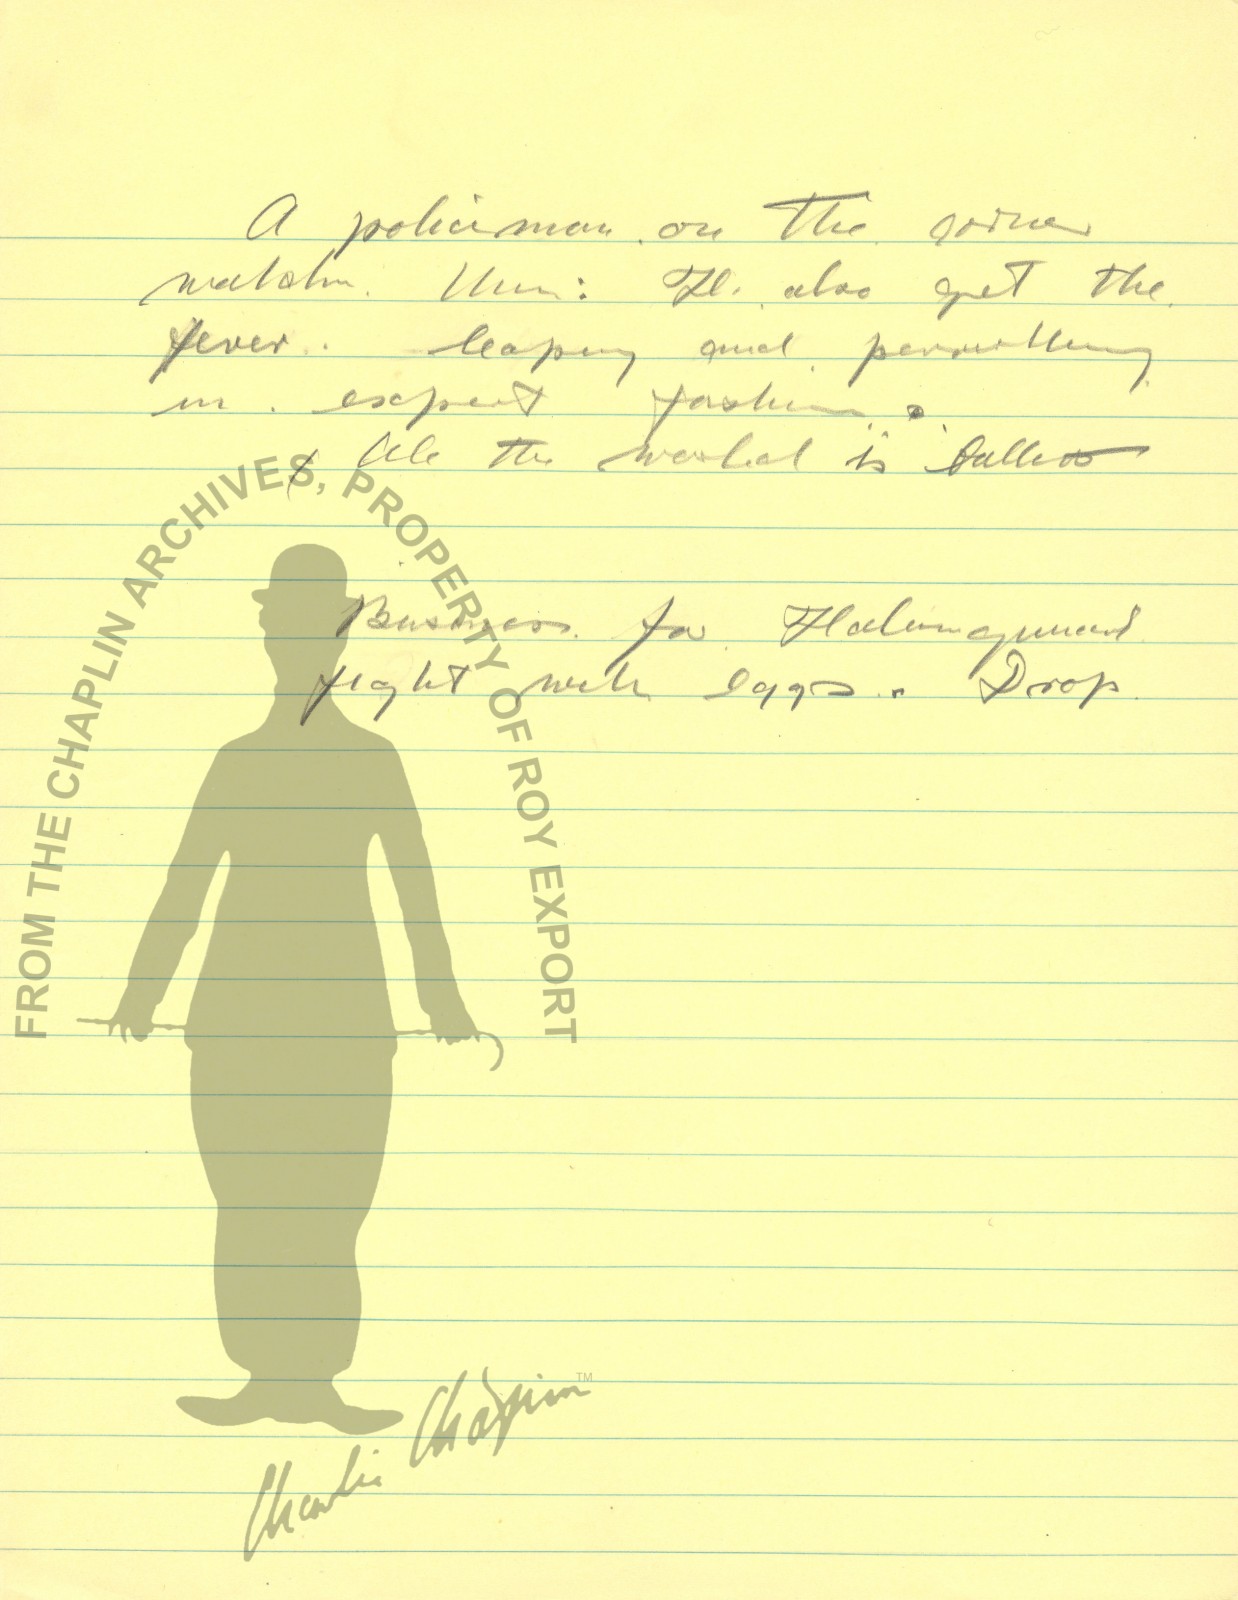 A policeman on the corner
watches them: He also get the
fever. leaping and pirouetting
in expert fashion.
x All the world is ballet
Business for
fight with eggs. Drop
FROM THE CHAPLIN ARCHIVES, PROPERTY OF ROY EXPORT
Charlie Chaplin TM